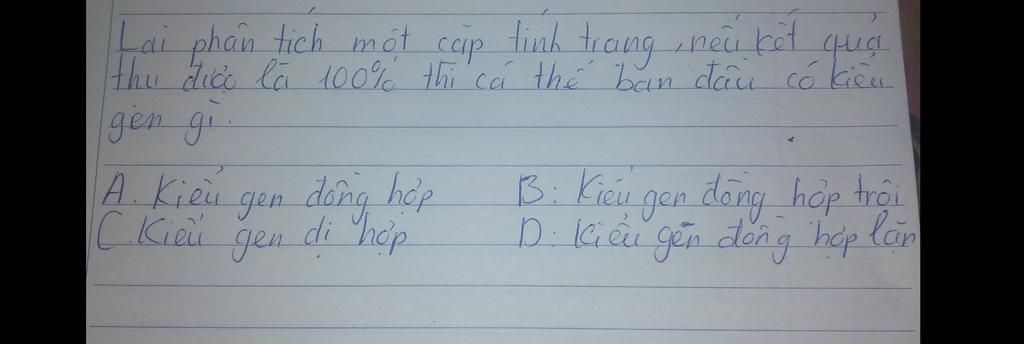 Lai phân tích một cặp tính trạng, nếu kết quả
thu được là 100% thì cá thể ban đầu có kiểu
gen gì.
A. Kiểu gen đồng hợp B: Kiểu gen đồng hợp trội
C. Kiểu gen dị hợp D: Kiểu gen đồng hợp lặn